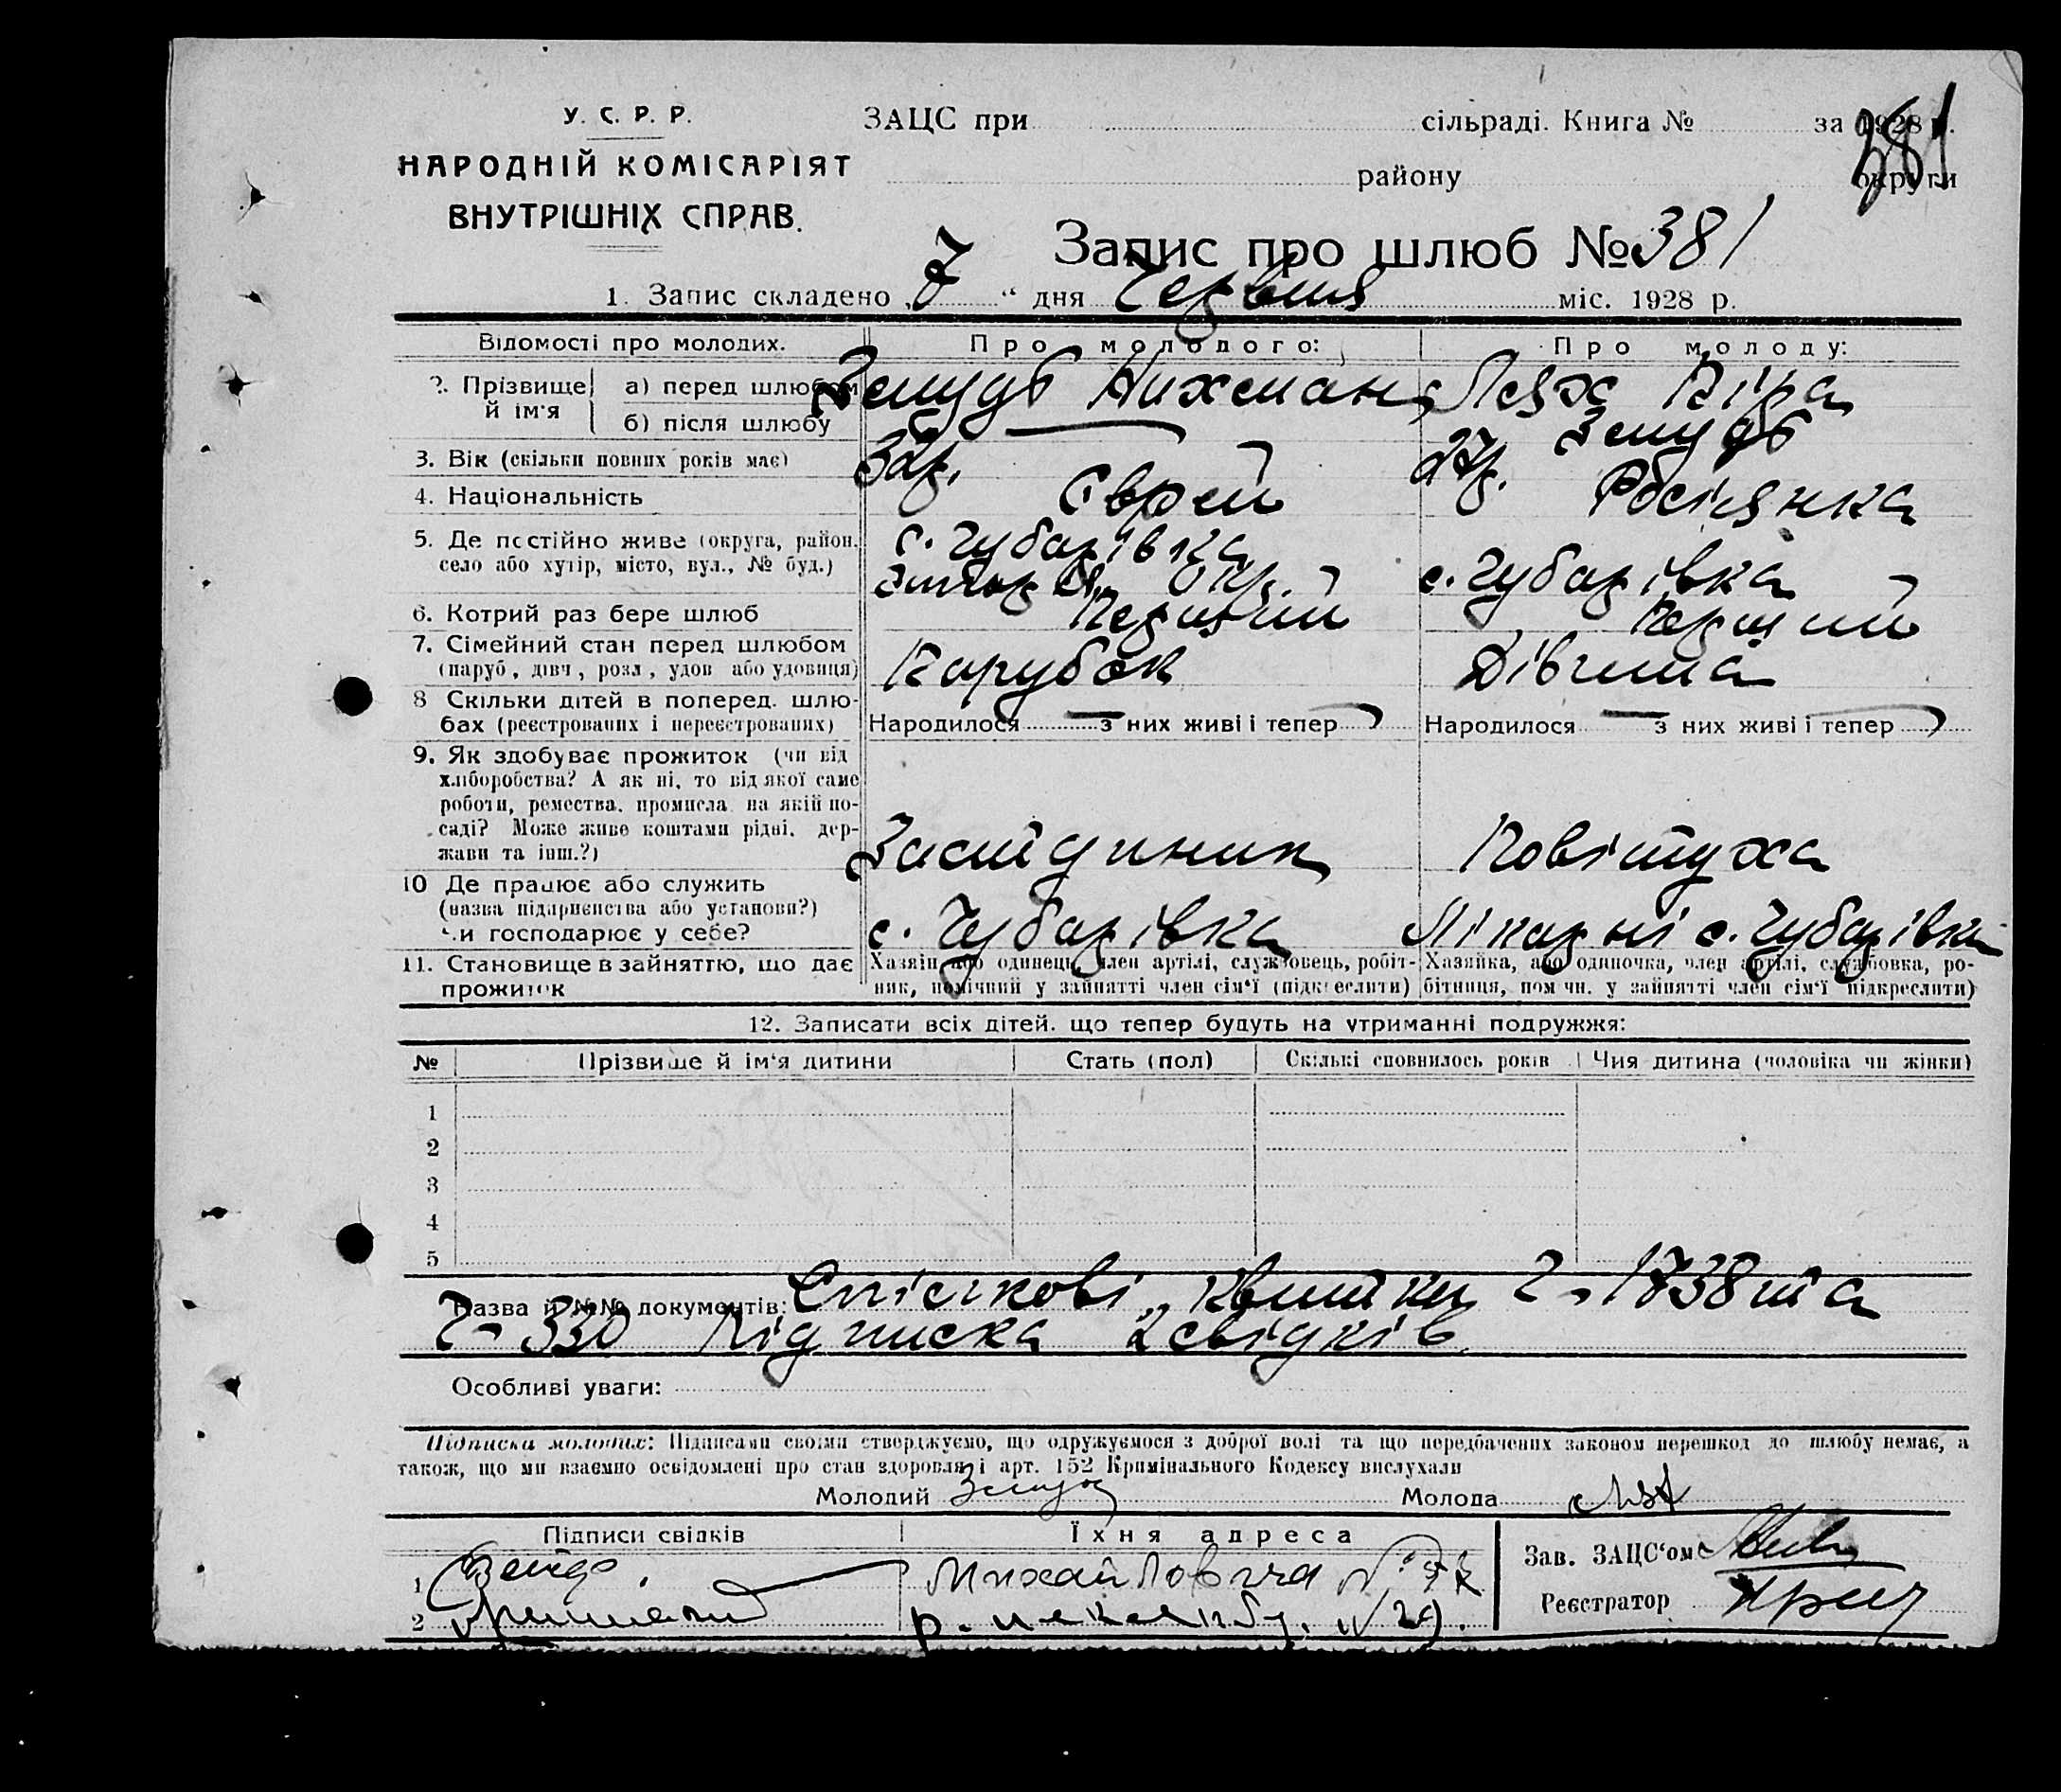 381
У. С. Р. Р.
НАРОДНІЙ КОМІСАРІЯТ
ВНУТРІШНІХ СПРАВ.
ЗАЦС при сільраді. Книга № за 1928 р.
району округи
Запис про шлюб № 381
1. Запис складено „7“ дня Червня міс. 1928 р.
Відомості про молодих. Про молодого: Про молоду:
2. Прізвище й ім'я а) перед шлюбом
б) після шлюбу
Віра
3. Вік (скільки повних років має) 32р. 27р.
4. Національність Єврей Росіянка
5. Де постійно живе (округа, район, село або хутір, місто, вул., № буд.)
с. Чубарівка
окр.
с. Чубарівка
6. Котрий раз бере шлюб Перший Перший
7. Сімейний стан перед шлюбом (паруб., дівч., розл., удов. або удовиця) Парубок Дівчина
8 Скільки дітей в поперед. шлюбах (реєстрованих і нереєстрованих)
Народилося — з них живі і тепер Народилося — з них живі і тепер
9. Як здобуває прожиток (чи від хліборобства? А як ні, то від якої саме роботи, ремества, промисла, на якій посаді? Може живе коштами рідні, держави та інш.?)
Повітуха
10 Де працює або служить (назва підприємства або установи?) Чи господарює у себе?
с. Чубарівка Лікарні с. Чубарівка
11. Становище в зайняттю, що дає прожиток
Хазяїн або одинець, член артілі, службовець, робітник, помічний у зайнятті член сім'ї (підкреслити)
Хазяйка, або одиночка, член артілі, службовка, робітниця, помічн. у зайнятті член сім'ї підкреслити)
12. Записати всіх дітей, що тепер будуть на утриманні подружжя:
№ Прізвище й ім'я дитини Стать (пол) Скількі сповнилось років Чия дитина (чоловіка чи жінки)
1
2
3
4
5
Назва й №№ документів: квитки 1738 та
330 Підписка 2 свідків
Особливі уваги:
Підписка молодих: Підписами своїми стверджуємо, що одружуємося з доброї волі та що передбачених законом перешкод до шлюбу немає, а
також, що ми взаємно освідомлені про стан здоровля і арт. 152 Кримінального Кодексу вислухали
Молодий Молода
Підписи свідків Їхня адреса
1
2
Зав. ЗАЦС'ом
Реєстратор